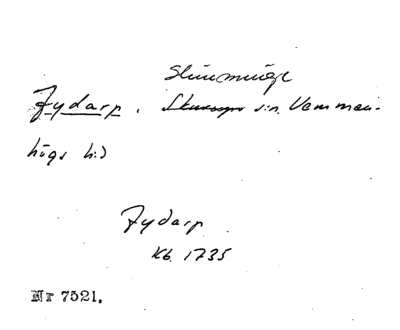 Slimminge
Fydarp. s:n Vemmen-
högs h:d
Fydarp
Kb. 1735
Nr 7521.